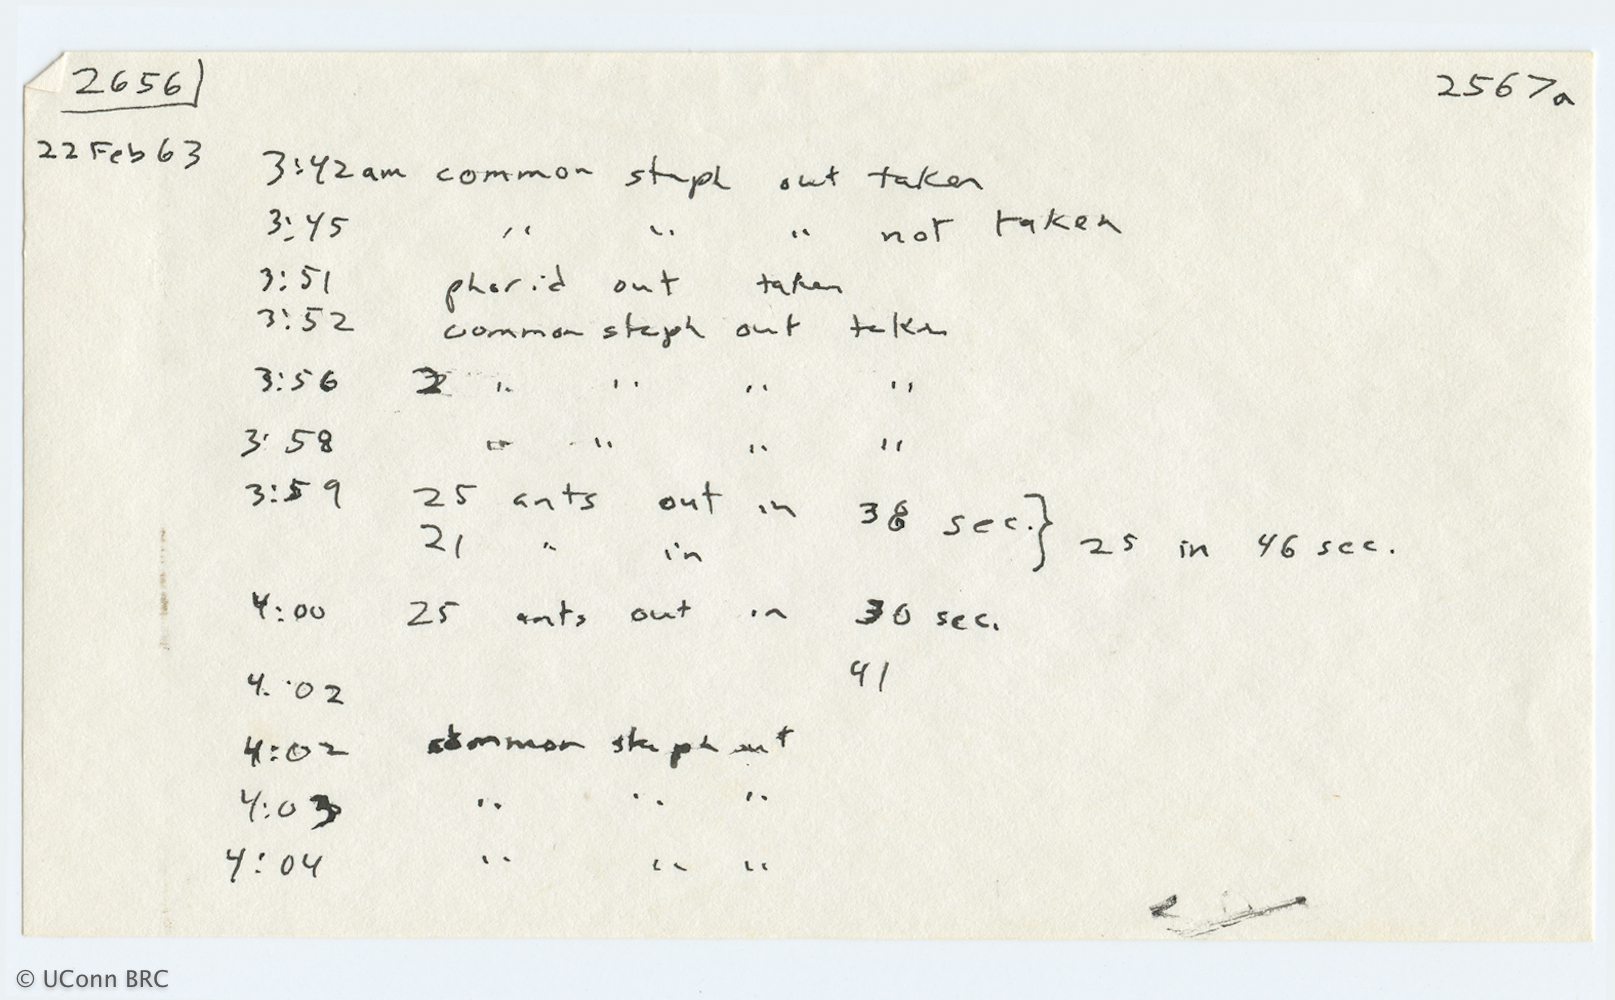 2656 2567a
22 Feb 63 3:42 am common staph out taken
3:45 " " " not taken
3:51 phorid out taken
3:52 common staph out taken
3:56 2 " " " "
3:58 " " " "
3:59 25 ants out in 38 sec. } 25 in 46 sec.
21 " in
4:00 25 ants out in 30 sec.
4:02 41
4:02 common staph out
4:03 " " "
4:04 " " "
© UConn BRC